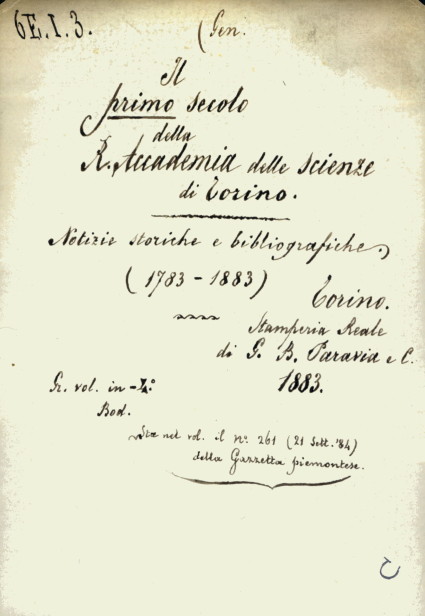 6E.I.3.
(Gen.
Il
primo secolo
della
R. Accademia delle scienze
di Torino.
Notizie storiche e bibliografiche.
(1783-1883)
Torino.
Stamperia Reale
di G. B. Paravia e C.
1883.
Gr. vol. in-4.º
Bod.
Sta nel vol. il nº 261 (21 Sett. '84)
della Gazzetta piemontese.